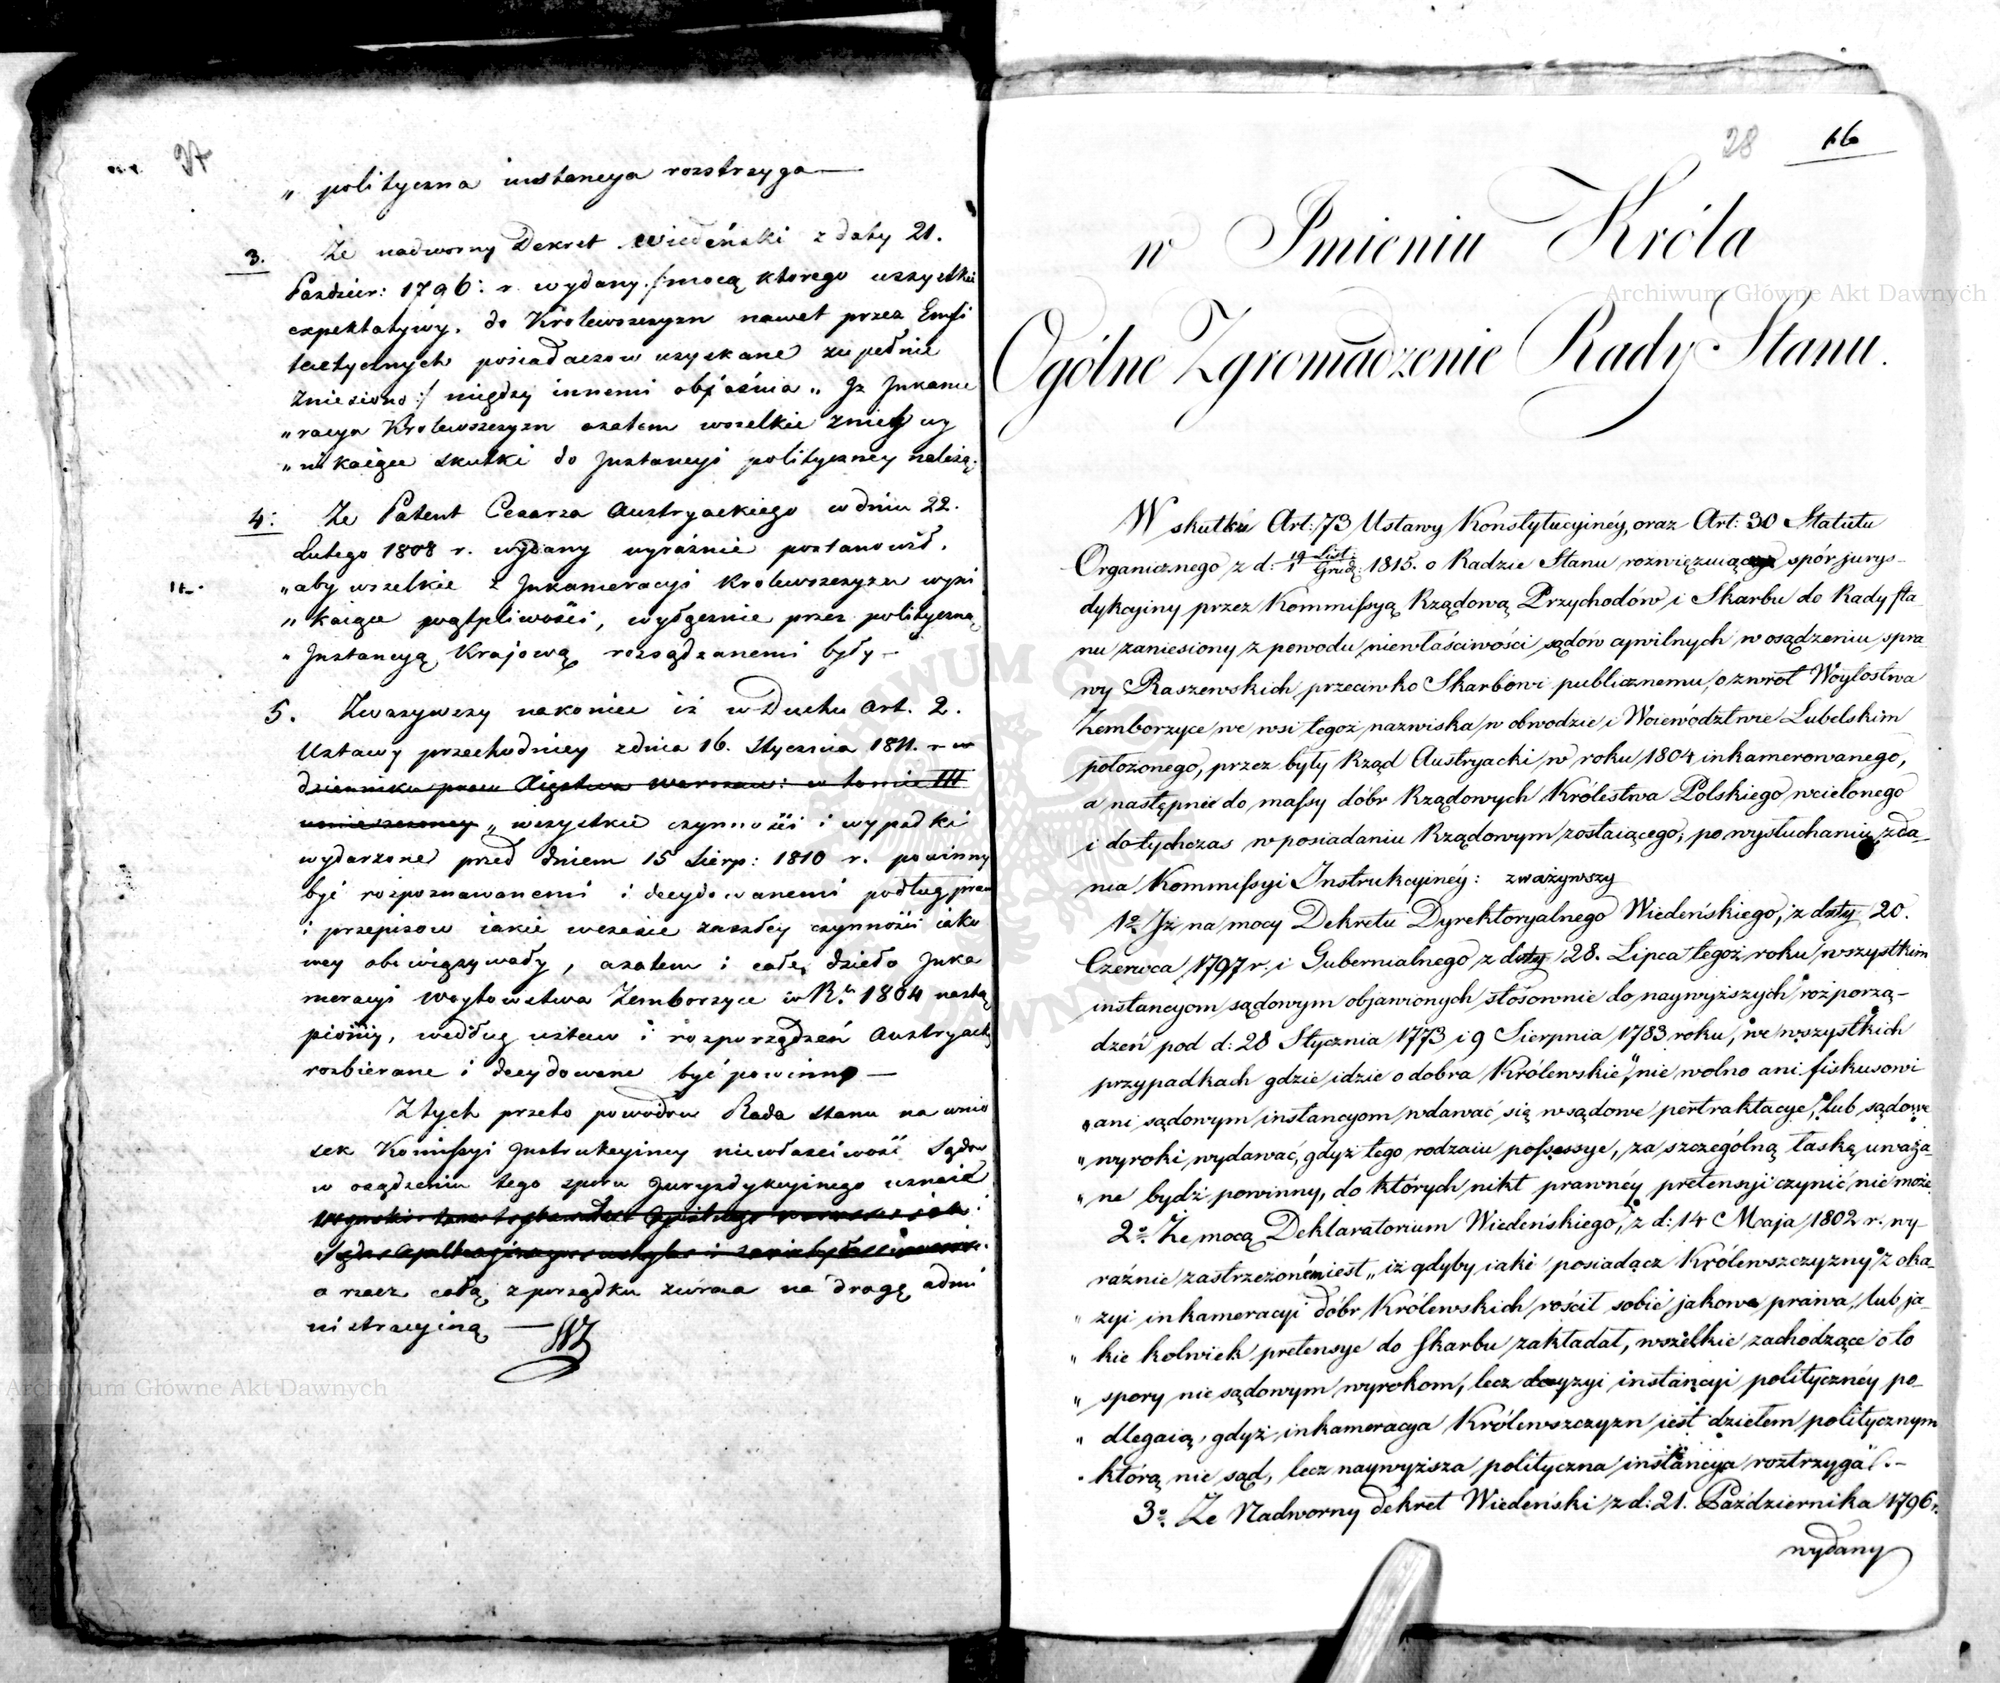 27
„ polityczna instancya rozstrzyga —
3. Że nadworny Dekret Wiedeński z daty 21.
Paździer: 1796: r. wydany /: mocą ktorego wszystkie
expektatywy, do Krolewszczyzn nawet przez Emfi
teutycznych posiadaczow uzyskane zupełnie
zniesiono :/ między innemi obiaśnia „ Iż Inkame
„racya Krolewszczyzn azatem wszelkie z niey wy
„nikaiące skutki do Instancyi polityczney należą.
4: Że Patent Cesarza Austryackiego w dniu 22.
Lutego 1808 r. wydany wyraźnie postanowił.
„aby wszelkie z Inkameracyi Krolewszczyzn wyni
„kaiące wątpliwości, wyłącznie przez polityczną
„Instancyą Krajową rozsądzanemi były —
5. Zważywszy nakoniec iż w Duchu Art. 2.
Ustawy przechodniey z dnia 16. Stycznia 1811. r. w
dzienniku praw Xięstwa Warszaw: w tomie III
umieszczoney „ wszystkie czynności i wypadki
wydarzone przed dniem 15 Sierp: 1810 r. powinny
być rozpoznawanemi i decydowanemi podług praw
i przepisow iakie wczasie zaszłey czynności iako
wey obowiązywały, azatem i całe dzieło Inka
meracyi Woytowstwa Zemborzyce w R.u 1804 nastą
pioney, według ustaw i rozporządzeń Austryack
rozbierane i decydowane być powinno —
Z tych przeto powodow Rada Stanu na wnio
sek Komissyi Instrukcyiney niewłaściwość Sądow
w osądzeniu tego sporu Jurysdykcyinego uznaie
a rzecz całą z porządku zwraca na drogę admi
nistracyiną —
28 16
w Imieniu Króla
Ogólne Zgromadzenie Rady Stanu.
W skutku Art: 73 Ustawy Konstytucyinéy, oraz Art: 30 Statutu
Organicznego z d: 19 List: / 1 Grud: 1815. o Radzie Stanu rozwięzuiąc spór jurys-
dykcyiny przez Kommissyą Rządową Przychodów i Skarbu do Rady Sta-
nu zaniesiony z powodu niewłaściwości sądów cywilnych w osądzeniu spra
wy Raszewskich przeciwko Skarbowi publicznemu, o zwrot Woytostwa
Zemborzyce we wsi tegoż nazwiska w obwodzie i Woiewództwie Lubelskim
położonego, przez były Rząd Austryacki w roku 1804 inkamerowanego,
a następnie do massy dóbr Rządowych Królestwa Polskiego wcielonego
i dotychczas w posiadaniu Rządowym zostaiącego, po wysłuchaniu zda-
nia Kommissyi Instrukcyinéy: zważywszy
1o. Iż na mocy Dekretu Dyrektoryalnego Wiedeńskiego, z daty 20.
Czerwca 1797 r. i Gubernialnego z daty 28. Lipca tegoż roku wszystkim
instancyom sądowym objawionych stosownie do naywyższych rozporzą-
dzeń pod d: 28 Stycznia 1773 i 9 Sierpnia 1783 roku, we wszystkich
przypadkach gdzie idzie o dobra Królewskie, „nie wolno ani fiskusowi
„ani sądowym instancyom wdawać się w sądowe pertraktacye, lub sądowe
„wyroki wydawać, gdyż tego rodzaiu possessye, za szczególną łaskę uważa-
„ne bydź powinny, do których nikt prawnéy pretensyi czynić nie może
2o. Że mocą Deklaratorium Wiedeńskiego, z d: 14 Maja 1802 r. wy-
raźnie zastrzeżoném iest „ iż gdyby iaki posiadącz Królewszczyzny z oka-
„zyi inkameracyi dóbr Królewskich rościł sobie jakowe prawa, lub ja-
„kie kolwiek pretensye do Skarbu zakładał, wszelkie zachodzące o to
„spory nie sądowym wyrokom, lecz decyzyi instancyi politycznéy po-
„dlegaią, gdyż inkameracya Królewszczyzn iest dziełem politycznym
„którą nie sąd, lecz naywyższa polityczna instancya roztrzyga". –
3o. Że Nadworny dekret Wiedeński z d: 21. Października 1796 r.
wydany
Archiwum Główne Akt Dawnych
Archiwum Główne Akt Dawnych